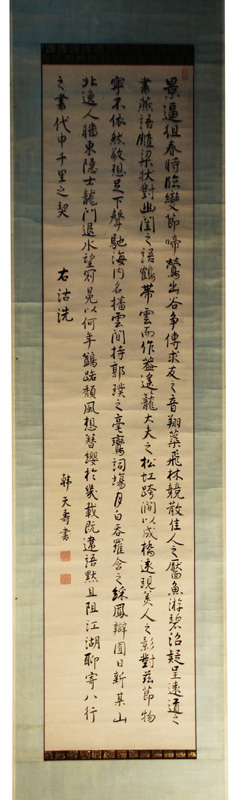 景逼徂春時臨變節啼鶯出谷爭傳求友之音翔蘂飛林競散佳人之靨魚游碧沼疑呈遠道之
書燕語雕梁狀對幽閨之語鶴帶雲而作蓋遙龍大夫之松虹跨澗以成橋遠現美人之影對茲節物
寧不依然敬想足下聲馳海内名播雲間持郭璞之毫鸞詞場月白吞羅含之綵鳳辯囿日新某山
北逸人牆東隱士龍門退水望冠冕以何年鷁路頽風想簪纓於幾載既違語默且阻江湖聊寄八行
之書代申千里之契
右沽洗
韓天壽書